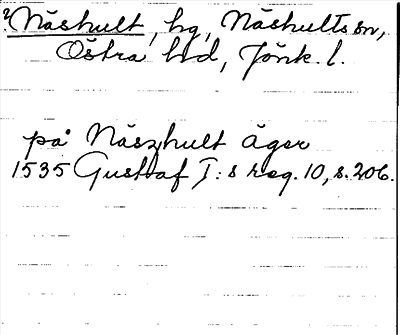 ? Näshult, hg, Näshults sn,
Östra hd, Jönk. l.
på Näszhult äger
1535 Gustaf I:s reg. 10, s. 206.